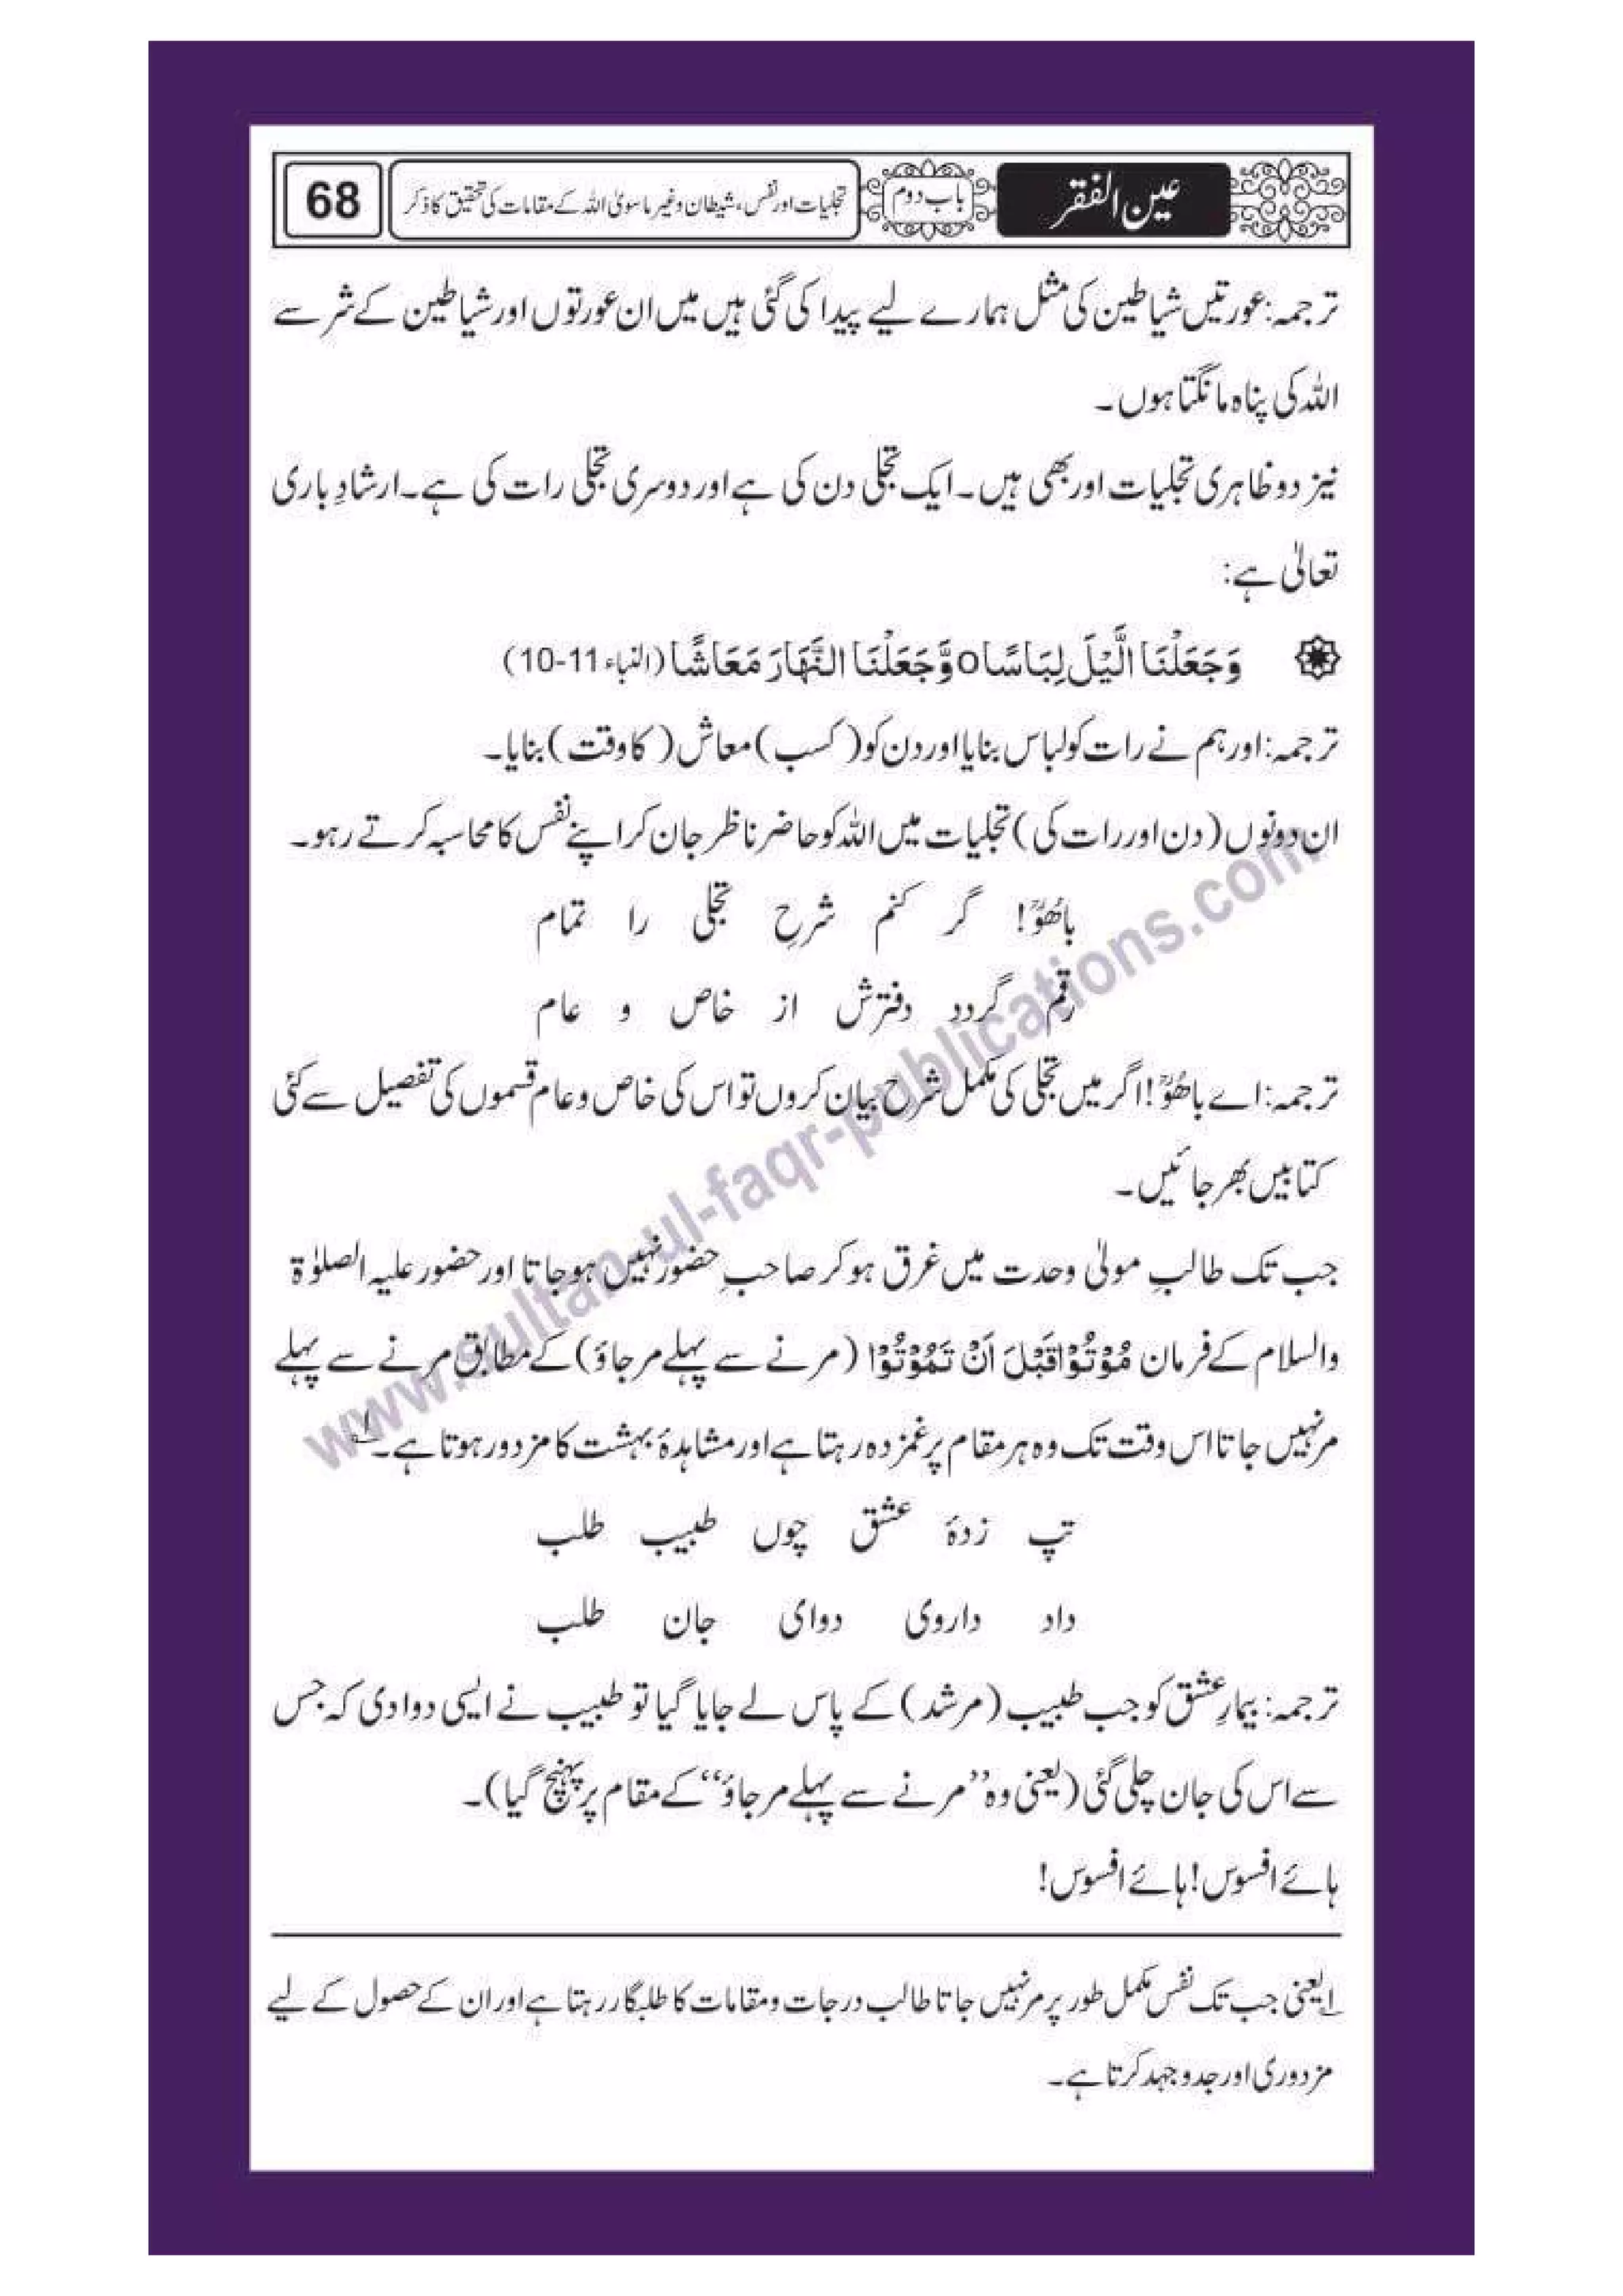 عین الفقر باب دوم تجلیات اور نفس، شیطان وغیر ماسویٰ اللہ کے مقامات کی تحقیق کا ذکر 68
ترجمہ: عورتیں شیاطین کی مثل ہمارے لیے پیدا کی گئی ہیں میں ان عورتوں اور شیاطین کے شر سے
اللہ کی پناہ مانگتا ہوں۔
نیز دو ظاہری تجلیات اور بھی ہیں۔ ایک تجلی دن کی ہے اور دوسری تجلی رات کی ہے۔ ارشادِ باری
تعالیٰ ہے:
وَجَعَلْنَا الَّيْلَ لِبَاسًا o وَّجَعَلْنَا النَّهَارَ مَعَاشًا (النباء 11-10)
ترجمہ: اور ہم نے رات کو لباس بنایا اور دن کو (کسب) معاش (کا وقت) بنایا۔
ان دونوں (دن اور رات کی) تجلیات میں اللہ کو حاضر ناظر جان کر اپنے نفس کا محاسبہ کرتے رہو۔
باھُوؒ! گر کنم شرحِ تجلی را تمام
رقم گردد دفترش از خاص و عام
ترجمہ: اے باھُوؒ! اگر میں تجلی کی مکمل شرح بیان کروں تو اس کی خاص و عام قسموں کی تفصیل سے کئی
کتابیں بھر جائیں۔
جب تک طالبِ مولیٰ وحدت میں غرق ہو کر صاحبِ حضور نہیں ہو جاتا اور حضور علیہ الصلوٰۃ
والسلام کے فرمان مُوْتُوْا قَبْلَ اَنْ تَمُوْتُوْا (مرنے سے پہلے مر جاؤ) کے مطابق مرنے سے پہلے
مر نہیں جاتا اس وقت تک وہ ہر مقام پر غمزدہ رہتا ہے اور مشاہدۂ بہشت کا مزدور ہوتا ہے۔ ۱
تپ زدۂ عشق چوں طبیب طلب
داد داروی دوای جان طلب
ترجمہ: بیمارِ عشق کو جب طبیب (مرشد) کے پاس لے جایا گیا تو طبیب نے ایسی دوا دی کہ جس
سے اس کی جان چلی گئی (یعنی وہ ”مرنے سے پہلے مر جاؤ“ کے مقام پر پہنچ گیا)۔
ہائے افسوس! ہائے افسوس!
۱ یعنی جب تک نفس مکمل طور پر مر نہیں جاتا طالب درجات و مقامات کا طلبگار رہتا ہے اور ان کے حصول کے لیے
مزدوری اور جدوجہد کرتا ہے۔
www.sultan-ul-faqr-publications.com